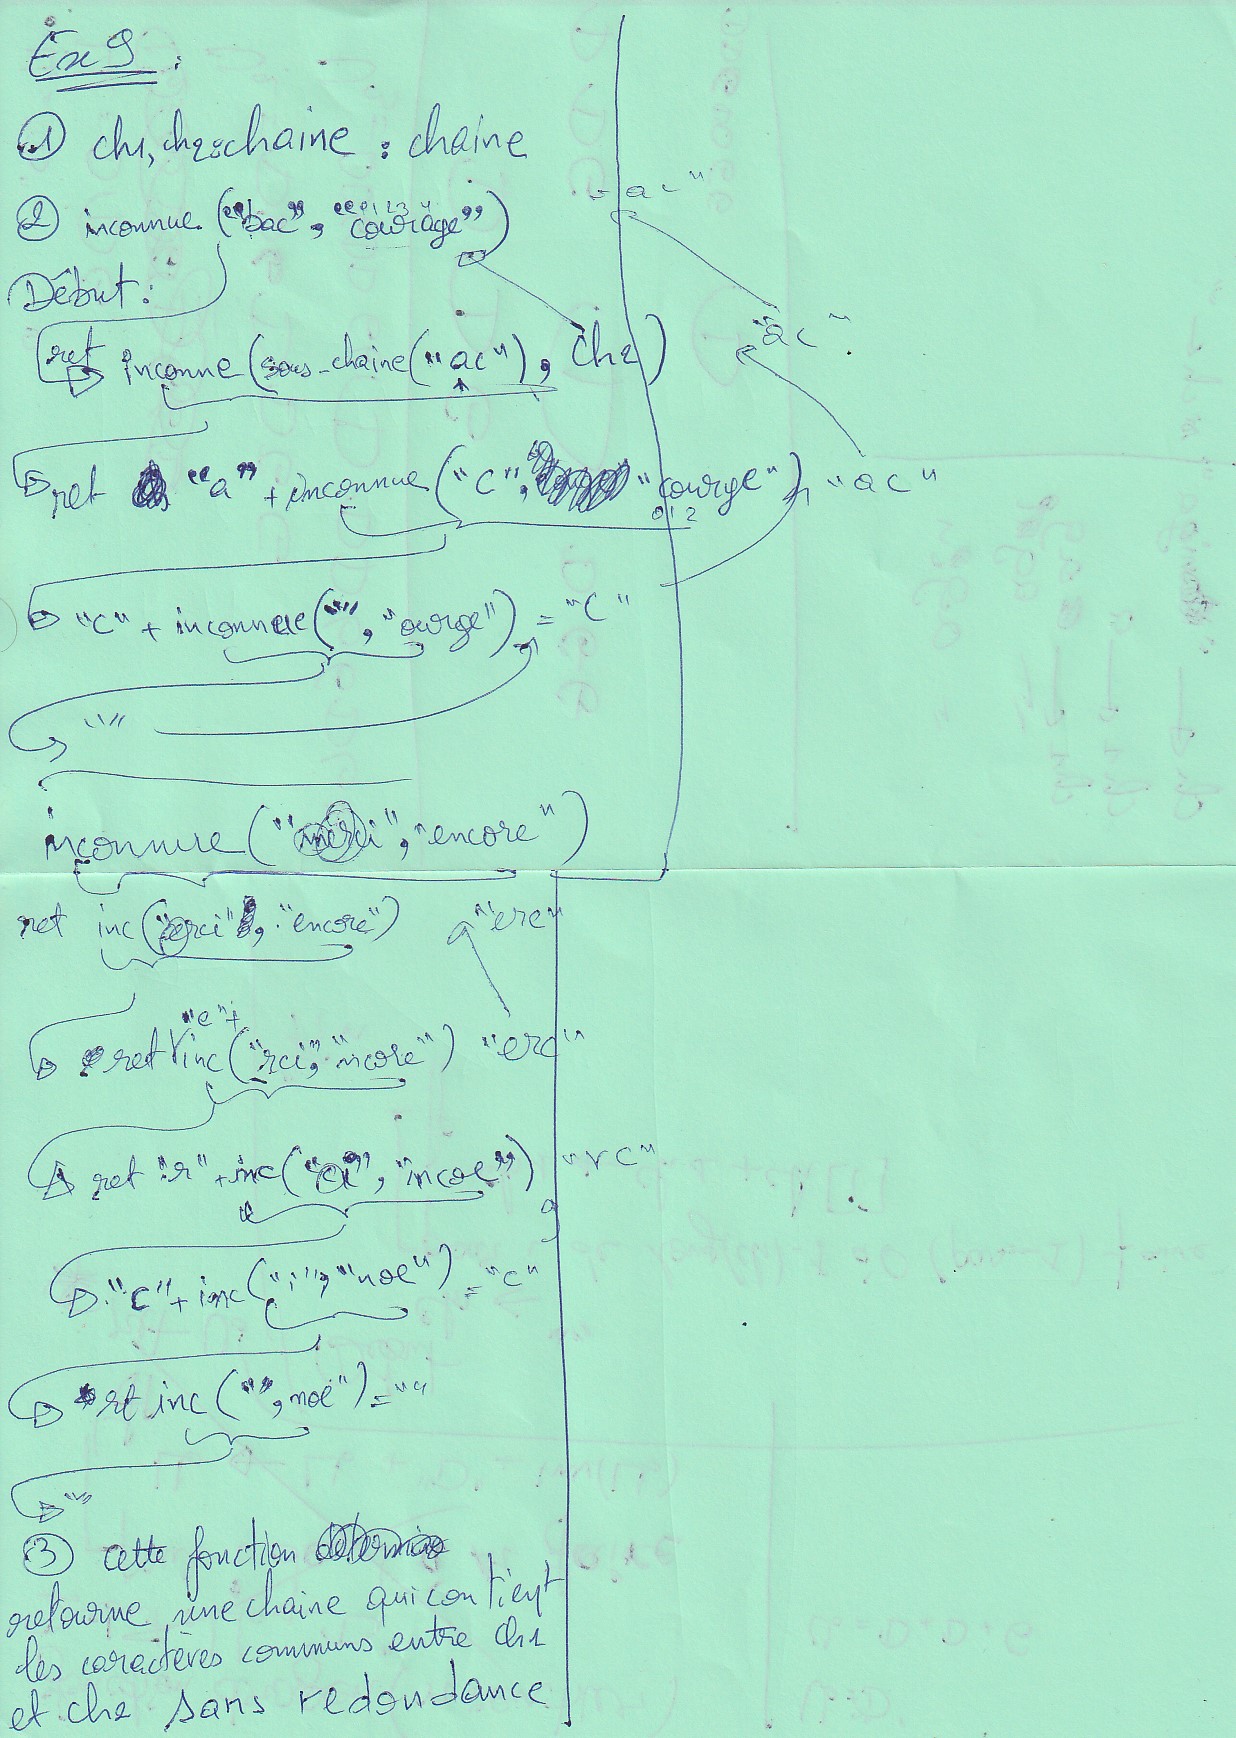 Ex 9 :
① ch1, ch2:chaine : chaine
② inconnue ("bac", "courage")
01234
Début :
ret inconne (sous-chaine("ac"), ch2)
"ac"
"ac"
ret "a" + inconnue ("c", "courge") "ac"
012
"c" + inconnue ("", "ourge") = "c"
""
inconnue ("merci", "encore")
ret inc ("erci", "encore") "erc"
ret "e" + inc ("rci", "ncore") "erc"
ret "r" + inc ("ci", "ncoe") "rc"
"c" + inc ("i", "noe") = "c"
ret inc ("", noe") = ""
""
③ cette fonction
retourne une chaine qui contient
les caractères communs entre ch1
et ch2 sans redondance